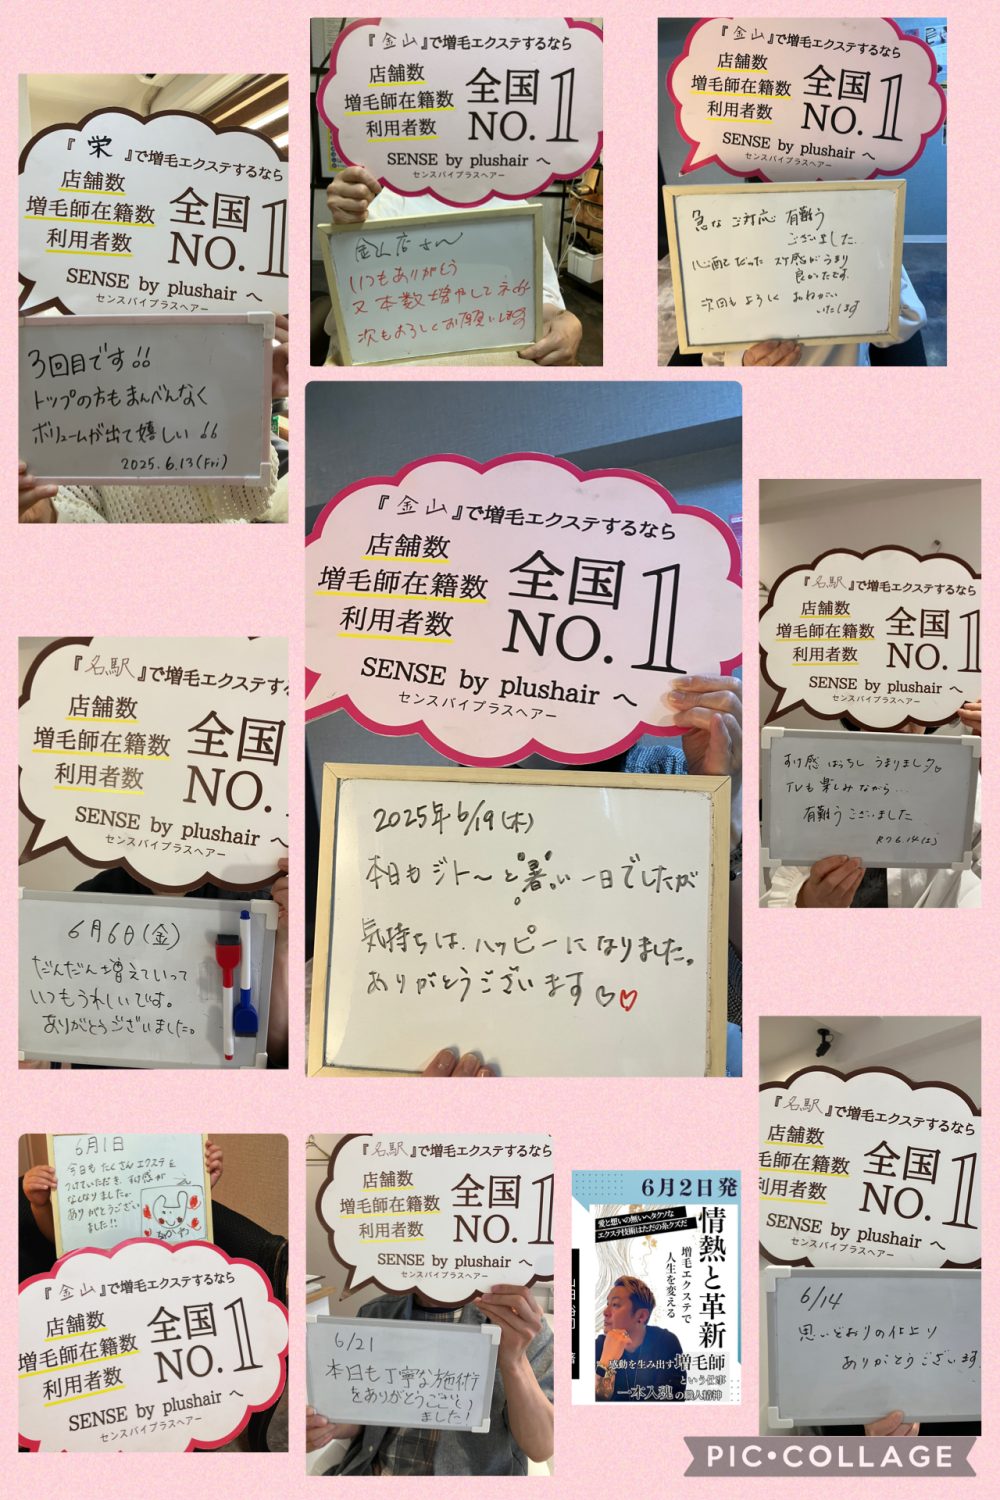 『栄』で増毛エクステするなら
店舗数
増毛師在籍数
利用者数
全国
NO.1
SENSE by plushair へ
センスバイプラスヘアー
3回目です!!
トップの方もまんべんなく
ボリュームが出て嬉しい!!
2025.6.13(Fri)
『金山』で増毛エクステするなら
店舗数
増毛師在籍数
利用者数
全国
NO.1
SENSE by plushair へ
センスバイプラスヘアー
金山店さん
いつもありがとう
又本数増やしてネ
次もよろしくお願いします
『金山』で増毛エクステするなら
店舗数
増毛師在籍数
利用者数
全国
NO.1
SENSE by plushair へ
センスバイプラスヘアー
急な ご対応 有難う
ございました.
心配だった スケ感がうまり
良かったです.
次回も よろしく おねがい
いたします
『金山』で増毛エクステするなら
店舗数
増毛師在籍数
利用者数
全国
NO.1
SENSE by plushair へ
センスバイプラスヘアー
2025年6/19(木)
本日もジト〜と暑い一日でしたが
気持ちは、ハッピーになりました。
ありがとうございます♡♡
『名駅』で増毛エクステするなら
店舗数
増毛師在籍数
利用者数
全国
NO.1
SENSE by plushair へ
センスバイプラスヘアー
すけ感 ばっちし うまりました。
TVも楽しみながら...
有難うございました
R7.6.14(土)
『名駅』で増毛エクステす
店舗数
増毛師在籍数
利用者数
全国
NO.
SENSE by plushair
センスバイプラスヘアー
6月6日(金)
だんだん増えていって
いつもうれしいです。
ありがとうございました。
6月1日
今日もたくさんエクステを
つけていただき、すけ感が
なくなりました
ありがとうござい
ました!!
『金山』で増毛エクステするなら
店舗数
増毛師在籍数
利用者数
全国
NO.1
SENSE by plushair へ
センスバイプラスヘアー
『名駅』で増毛エクステするなら
店舗数
増毛師在籍数
利用者数
全国
NO.1
SENSE by plushair へ
センスバイプラスヘアー
6/21
本日も丁寧な施術
をありがとうござい
ました!
6月2日発
愛と想いの無いヘタクソな
エクステ技術はただの糸クズだ
情熱と革新
増毛エクステで
人生を変える
感動を生み出す増毛師
という仕事
一本入魂の職人精神
『名駅』で増毛エクステするなら
店舗数
毛師在籍数
利用者数
全国
NO.1
SENSE by plushair へ
センスバイプラスヘアー
6/14
思いどおりの仕上り
ありがとうございます
PIC•COLLAGE